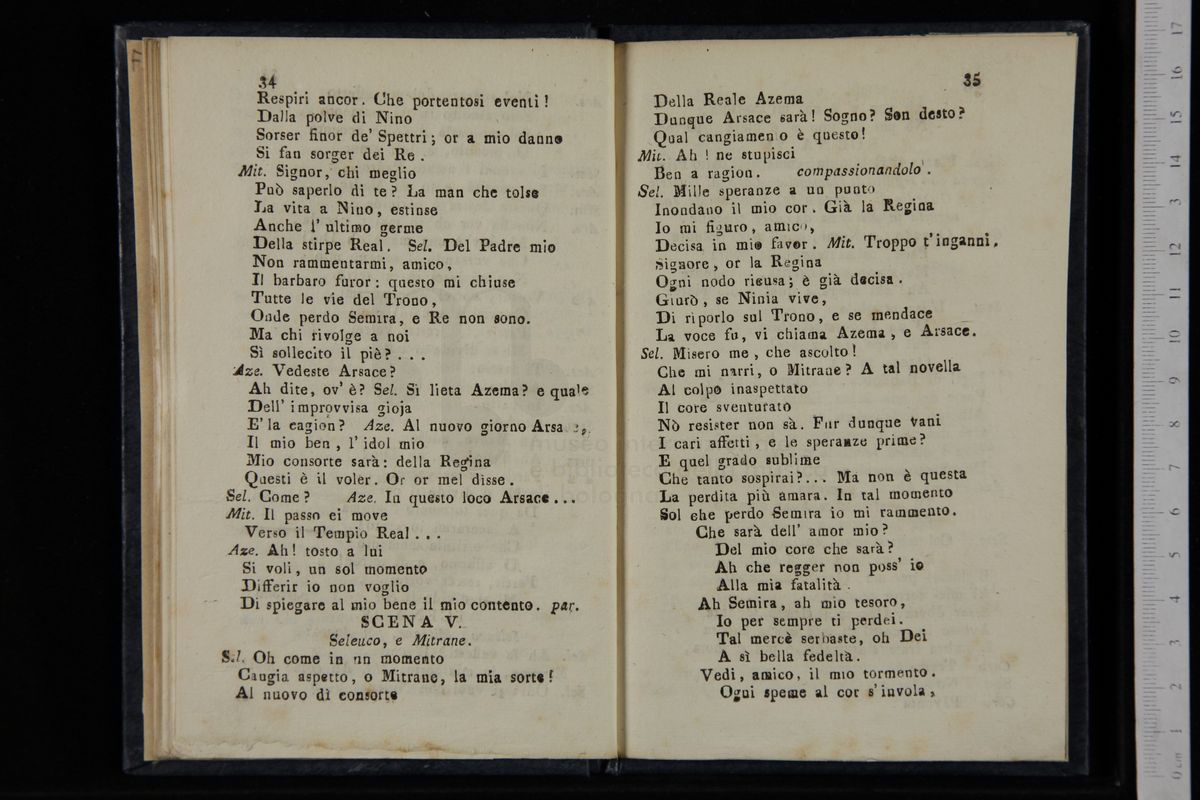 34
Respiri ancor. Che portentosi eventi!
Dalla polve di Nino
Sorser finor de' Spettri; or a mio danno
Si fan sorger dei Re.
Mit. Signor, chi meglio
Può saperlo di te? La man che tolse
La vita a Nino, estinse
Anche l' ultimo germe
Della stirpe Real. Sel. Del Padre mio
Non rammentarmi, amico,
Il barbaro furor: questo mi chiuse
Tutte le vie del Trono,
Onde perdo Semira, e Re non sono.
Ma chi rivolge a noi
Sì sollecito il piè? . . .
Aze. Vedeste Arsace?
Ah dite, ov' è? Sel. Sì lieta Azema? e quale
Dell' improvvisa gioja
E' la cagion? Aze. Al nuovo giorno Arsa
Il mio ben, l' idol mio
Mio consorte sarà: della Regina
Questi è il voler. Or or mel disse.
Sel. Come? Aze. In questo loco Arsace...
Mit. Il passo ei move
Verso il Tempio Real . . .
Aze. Ah! tosto a lui
Si voli, un sol momento
Differir io non voglio
Di spiegare al mio bene il mio contento. par.
SCENA V.
Seleuco, e Mitrane.
Sel. Oh come in un momento
Cangia aspetto, o Mitrane, la mia sorte!
Al nuovo dì consorte
35
Della Reale Azema
Dunque Arsace sarà! Sogno? Son desto?
Qual cangiamen o è questo!
Mit. Ah! ne stupisci
Ben a ragion. compassionandolo.
Sel. Mille speranze a un punto
Inondano il mio cor. Già la Regina
Io mi figuro, amico,
Decisa in mio favor. Mit. Troppo t'inganni,
Signore, or la Regina
Ogni nodo ricusa; è già decisa.
Giurò, se Ninia vive,
Di riporlo sul Trono, e se mendace
La voce fu, vi chiama Azema, e Arsace.
Sel. Misero me, che ascolto!
Che mi narri, o Mitrane? A tal novella
Al colpo inaspettato
Il core sventurato
Nò resister non sà. Fur dunque vani
I cari affetti, e le speranze prime?
E quel grado sublime
Che tanto sospirai?... Ma non è questa
La perdita più amara. In tal momento
Sol che perdo Semira io mi rammento.
Che sarà dell' amor mio?
Del mio core che sarà?
Ah che regger non poss' io
Alla mia fatalità.
Ah Semira, ah mio tesoro,
Io per sempre ti perdei.
Tal mercè serbaste, oh Dei
A sì bella fedeltà.
Vedi, amico, il mio tormento.
Ogni speme al cor s'invola,